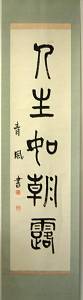 人生如朝露
青風書